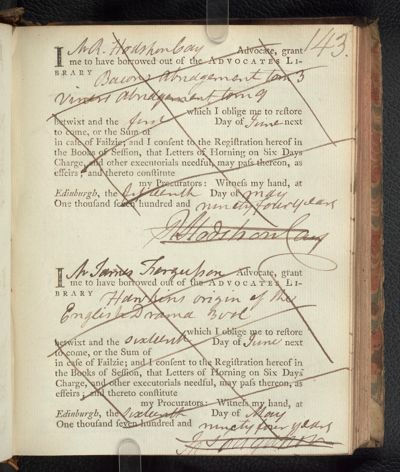 143.
I Mr R. Hodshon Cay Advocate, grant
me to have borrowed out of the ADVOCATES LI-
BRARY Bacons Abridgement tom 3
Viners Abridgement tom 9
which I oblige me to restore
betwixt and the first Day of June next
to come, or the Sum of
in case of Failzie; and I consent to the Registration hereof in
the Books of Session, that Letters of Horning on Six Days
Charge, and other executorials needful, may pass thereon, as
effeirs; and thereto constitute
my Procurators: Witness my hand, at
Edinburgh, the fifteenth Day of May
One thousand seven hundred and ninety four years
R Hodshon Cay
I Mr James Fergusson Advocate, grant
me to have borrowed out of the ADVOCATES LI-
BRARY Hawkins origin of the
English Drama
which I oblige me to restore
betwixt and the sixteenth Day of June next
to come, or the Sum of
in case of Failzie; and I consent to the Registration hereof in
the Books of Session, that Letters of Horning on Six Days
Charge, and other executorials needful, may pass thereon, as
effeirs; and thereto constitute
my Procurators: Witness my hand, at
Edinburgh, the sixteenth Day of May
One thousand seven hundred and ninety four years